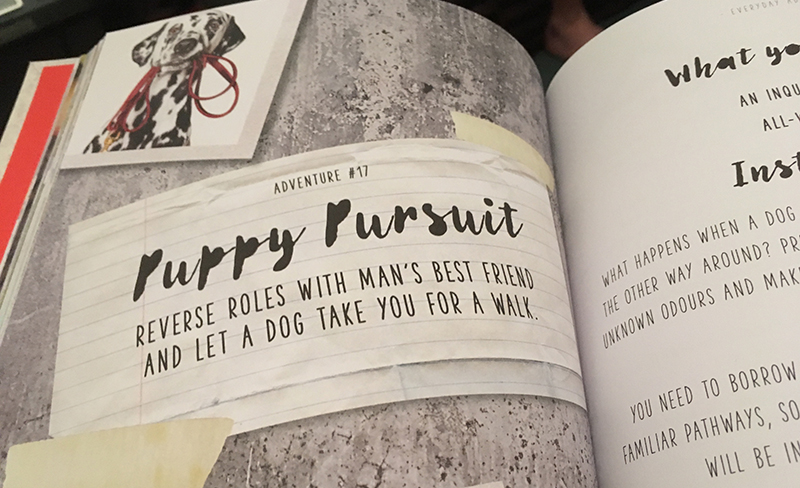 ADVENTURE #17
Puppy Pursuit
REVERSE ROLES WITH MAN'S BEST FRIEND
AND LET A DOG TAKE YOU FOR A WALK.
EVERYDAY
What
AN
WHAT HAPPENS WHEN A DOG
THE OTHER WAY AROUND?
UNKNOWN ODOURS AND
YOU NEED TO BORROW
FAMILIAR PATHWAYS, SO
WILL BE